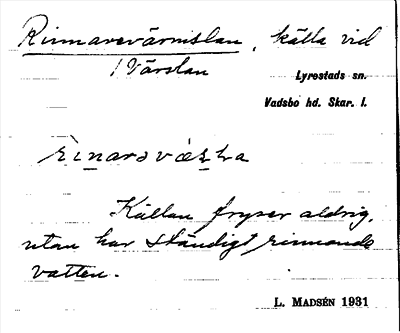 Rinnarevärnslan, källa vid
/ Värslan
Lyrestads sn.
Vadsbo hd. Skar. l.
Källan fryser aldrig,
utan har ständigt rinnande
vatten.
L. MADSÉN 1931